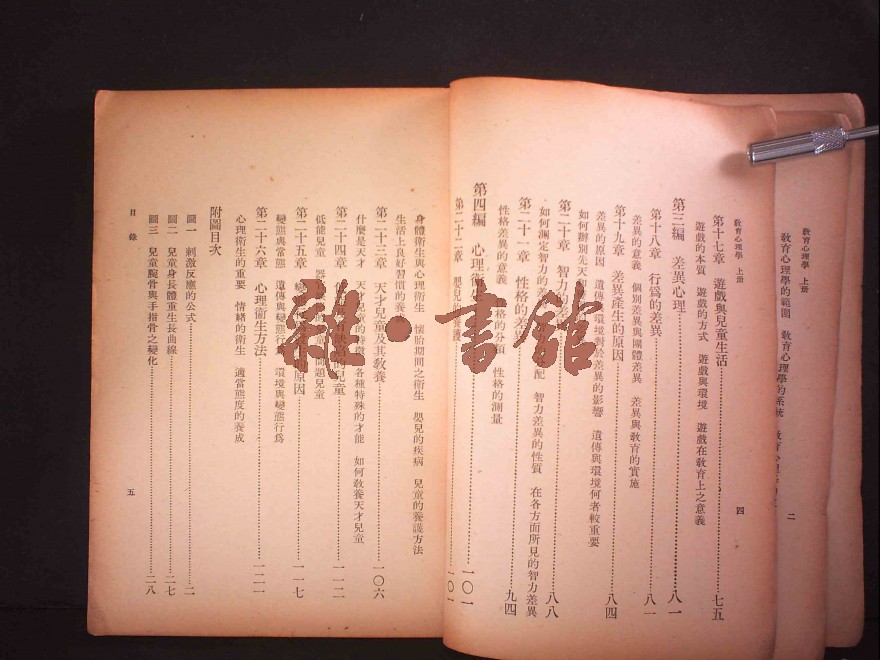 教育心理學 上册
教育心理學的範圍 教育心理學的系統
二
教育心理學 上册
第十七章 遊戲與兒童生活 七五
遊戲的本質 遊戲的方式 遊戲與環境 遊戲在教育上之意義
第三編 差異心理 八一
第十八章 行為的差異 八一
差異的意義 個別差異與團體差異 差異與教育的實施
第十九章 差異產生的原因 八四
差異的原因 遺傳與環境對於差異的影響 遺傳與環境何者較重要
如何辦別先天
第二十章 智力的差異 八八
如何測定智力的 配 智力差異的性質 在各方面所見的智力差異
第二十一章 性格的差 九四
性格差異的意義 格的分類 性格的測量
第四編 心理衛 一〇一
第二十二章 嬰兒的養護 一〇一
四
身體衛生與心理衛生 懷胎期間之衛生 嬰兒的疾病 兒童的養護方法
生活上良好習慣的養
第二十三章 天才兒童及其敎養 一〇六
什麼是天才 天 的特徵 各種特殊的才能 如何敎養天才兒童
第二十四章 的兒童 一一二
低能兒童 器 的 問題兒童
第二十五章 變 原因 一一七
變態與常態 遺傳與變態行 環境與變態行為
第二十六章 心理衛生方法 一二一
心理衛生的重要 情緒的衛生 適當態度的養成
附圖目次
圖一 刺激反應的公式 二
圖二 兒童身長體重生長曲線 二七
圖三 兒童腕骨與手指骨之變化 二八
目錄
五
雜·書館